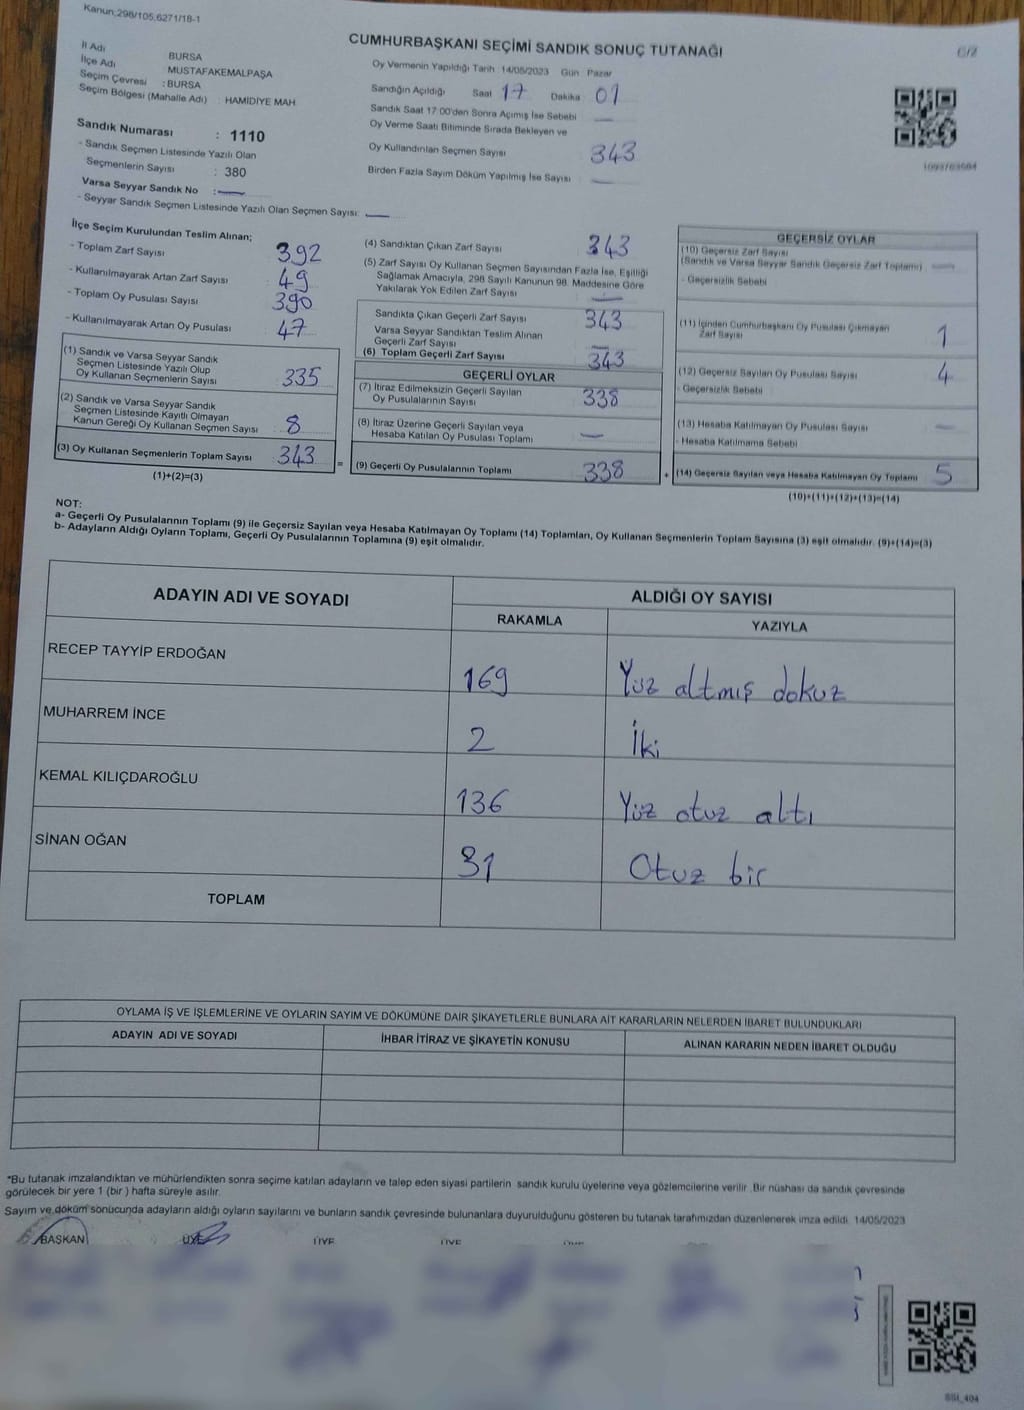 Kanun:298/105,6271/18-1
CUMHURBAŞKANI SEÇİMİ SANDIK SONUÇ TUTANAĞI
İl Adı BURSA
İlçe Adı : MUSTAFAKEMALPAŞA
Seçim Çevresi : BURSA
Seçim Bölgesi (Mahalle Adı) : HAMİDİYE MAH
Sandık Numarası : 1110
- Sandık Seçmen Listesinde Yazılı Olan
Seçmenlerin Sayısı : 380
Varsa Seyyar Sandık No :
- Seyyar Sandık Seçmen Listesinde Yazılı Olan Seçmen Sayısı:
Oy Vermenin Yapıldığı Tarih :14/05/2023 Gün Pazar
Sandığın Açıldığı Saat 17 Dakika 01
Sandık Saat 17:00'den Sonra Açımış İse Sebebi
Oy Verme Saati Bitiminde Sırada Bekleyen ve
Oy Kullandırılan Seçmen Sayısı 343
Birden Fazla Sayım Döküm Yapılmış İse Sayısı
İlçe Seçim Kurulundan Teslim Alınan;
- Toplam Zarf Sayısı 392
- Kullanılmayarak Artan Zarf Sayısı 49
- Toplam Oy Pusulası Sayısı 390
- Kullanılmayarak Artan Oy Pusulası 47
(1) Sandık ve Varsa Seyyar Sandık
Seçmen Listesinde Yazılı Olup
Oy Kullanan Seçmenlerin Sayısı 335
(2) Sandık ve Varsa Seyyar Sandık
Seçmen Listesinde Kayıtlı Olmayan
Kanun Gereği Oy Kullanan Seçmen Sayısı 8
(3) Oy Kullanan Seçmenlerin Toplam Sayısı 343
(1)+(2)=(3)
(4) Sandıktan Çıkan Zarf Sayısı 343
(5) Zarf Sayısı Oy Kullanan Seçmen Sayısından Fazla İse, Eşitliği
Sağlamak Amacıyla, 298 Sayılı Kanunun 98. Maddesine Göre
Yakılarak Yok Edilen Zarf Sayısı
Sandıkta Çıkan Geçerli Zarf Sayısı 343
Varsa Seyyar Sandıktan Teslim Alınan
Geçerli Zarf Sayısı
(6) Toplam Geçerli Zarf Sayısı 343
GEÇERLİ OYLAR
(7) İtiraz Edilmeksizin Geçerli Sayılan
Oy Pusulalarının Sayısı 338
(8) İtiraz Üzerine Geçerli Sayılan veya
Hesaba Katılan Oy Pusulası Toplamı
= (9) Geçerli Oy Pusulalarının Toplamı 338
GEÇERSİZ OYLAR
(10) Geçersiz Zarf Sayısı
(Sandık ve Varsa Seyyar Sandık Geçersiz Zarf Toplamı)
- Geçersizlik Sebebi
(11) İçinden Cumhurbaşkanı Oy Pusulası Çıkmayan
Zarf Sayısı 1
(12) Geçersiz Sayılan Oy Pusulası Sayısı 4
- Geçersizlik Sebebi
(13) Hesaba Katılmayan Oy Pusulası Sayısı
- Hesaba Katılmama Sebebi
+ (14) Geçersiz Sayılan veya Hesaba Katılmayan Oy Toplamı 5
(10)+(11)+(12)+(13)=(14)
NOT:
a- Geçerli Oy Pusulalarının Toplamı (9) ile Geçersiz Sayılan veya Hesaba Katılmayan Oy Toplamı (14) Toplamları, Oy Kullanan Seçmenlerin Toplam Sayısına (3) eşit olmalıdır. (9)+(14)=(3)
b- Adayların Aldığı Oyların Toplamı, Geçerli Oy Pusulalarının Toplamına (9) eşit olmalıdır.
ADAYIN ADI VE SOYADI
ALDIĞI OY SAYISI
RAKAMLA YAZIYLA
RECEP TAYYİP ERDOĞAN 169 Yüz altmış dokuz
MUHARREM İNCE 2 İki
KEMAL KILIÇDAROĞLU 136 Yüz otuz altı
SİNAN OĞAN 31 Otuz bir
TOPLAM
OYLAMA İŞ VE İŞLEMLERİNE VE OYLARIN SAYIM VE DÖKÜMÜNE DAİR ŞİKAYETLERLE BUNLARA AİT KARARLARIN NELERDEN İBARET BULUNDUKLARI
ADAYIN ADI VE SOYADI İHBAR İTİRAZ VE ŞİKAYETİN KONUSU ALINAN KARARIN NEDEN İBARET OLDUĞU
*Bu tutanak imzalandıktan ve mühürlendikten sonra seçime katılan adayların ve talep eden siyasi partilerin sandık kurulu üyelerine veya gözlemcilerine verilir. Bir nüshası da sandık çevresinde
görülecek bir yere 1 (bir ) hafta süreyle asılır.
Sayım ve döküm sonucunda adayların aldığı oyların sayılarını ve bunların sandık çevresinde bulunanlara duyurulduğunu gösteren bu tutanak tarafımızdan düzenlenerek imza edildi. 14/05/2023
BAŞKAN ÜYE ÜYE ÜYE